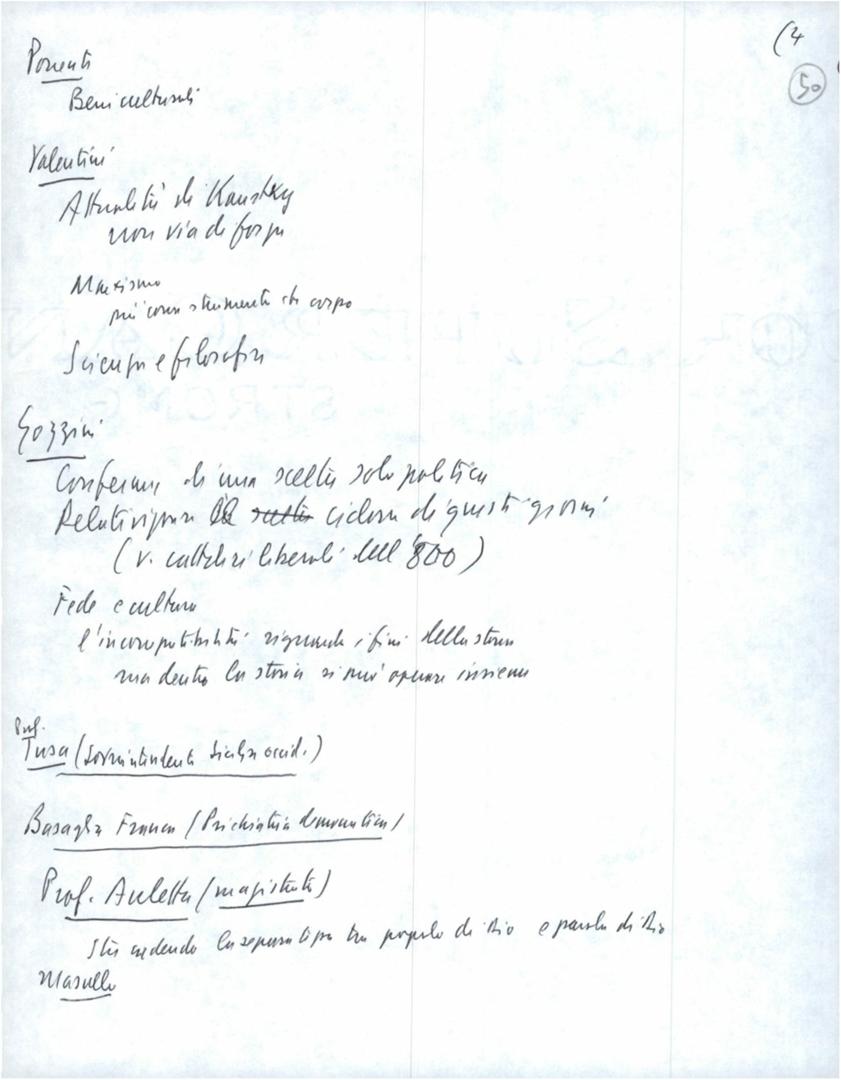 (4
50
Ponenti
Beni culturali
Valentini
Attualità di Kautsky
non via di forza
Marxismo
più come strumento che corpo
Scienza e filosofia
Gozzini
Conferma di una scelta solo politica
Relativizzare di questi giorni
(v. cattolici liberali dell'800)
Fede e cultura
l'incompatibilità riguarda i fini della storia
ma dentro la storia si può operare insieme
Prof.
Tusa (Sovrintendente Sicilia occid.)
Basaglia Franca (Psichiatria democratica)
Prof. Auletta (magistrato)
Sta cedendo la separazione tra popolo di Dio e parola di Dio
Masullo